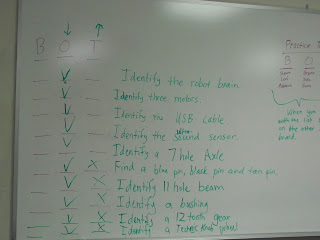 B O T
Identify the robot brain
Identify three motors
Identify the USB cable
Identify the Sound sensor
Identify a 7 hole Axle
Find a blue pin, black pin and tan pin
Identify 11 hole beam
Identify a bushing
Identify a 12 tooth gear
Identify a
Practice
B O
When you
on the other
board.